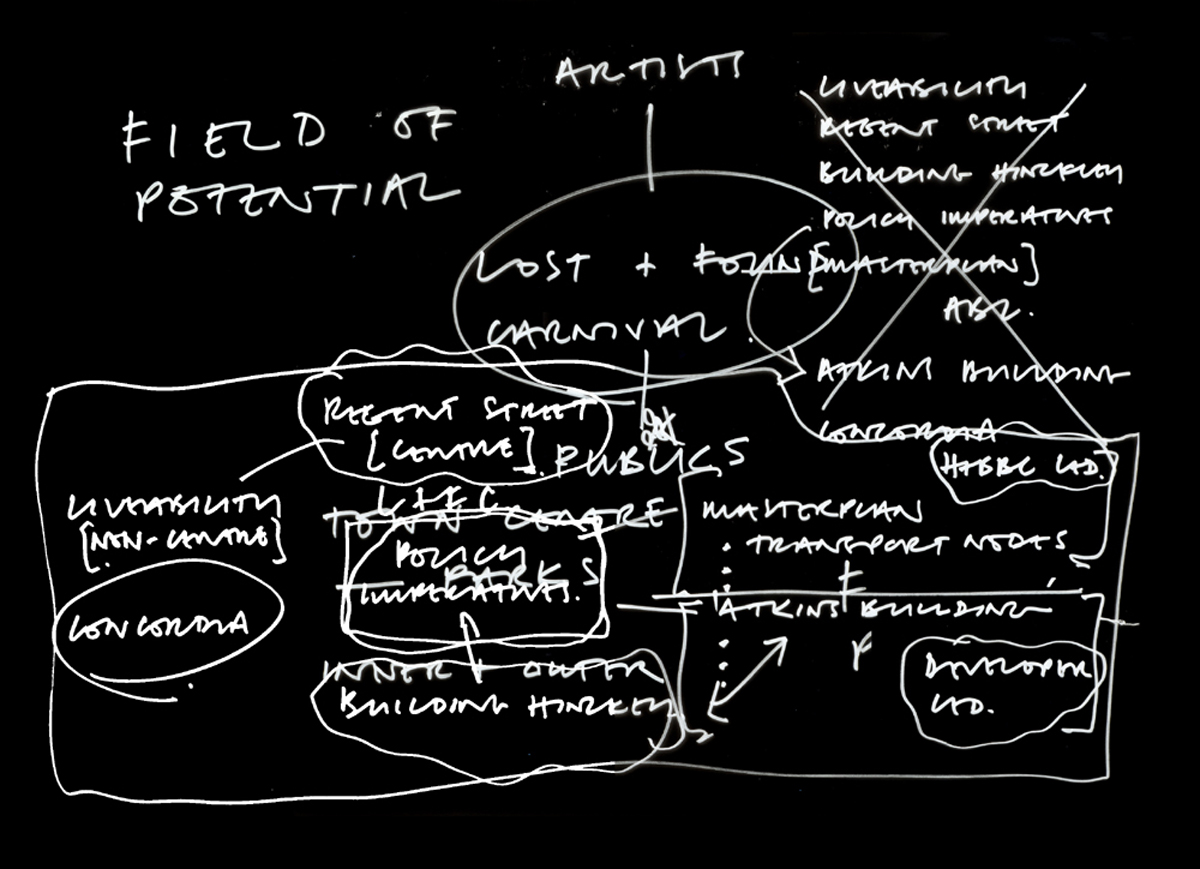 ARTISTS
FIELD OF
POTENTIAL
LIVEABILITY
REGENT STREET
BUILDING HINCKLEY
POLICY IMPERATIVES
[MASTERPLAN]
ABL.
ATKINS BUILDING
CONCORDIA
LOST + FOUND
CARNIVAL
REGENT STREET
[CENTRE]
PUBLICS
HBBC LAD.
LIVEABILITY
[NON-CENTRE]
TOWN CENTRE
POLICY
IMPERATIVES.
PARKS
MASTERPLAN
TRANSPORT NODES
CONCORDIA
ATKINS BUILDING
INNER + OUTER
BUILDING HINCKLEY
DEVELOPER
LAD.